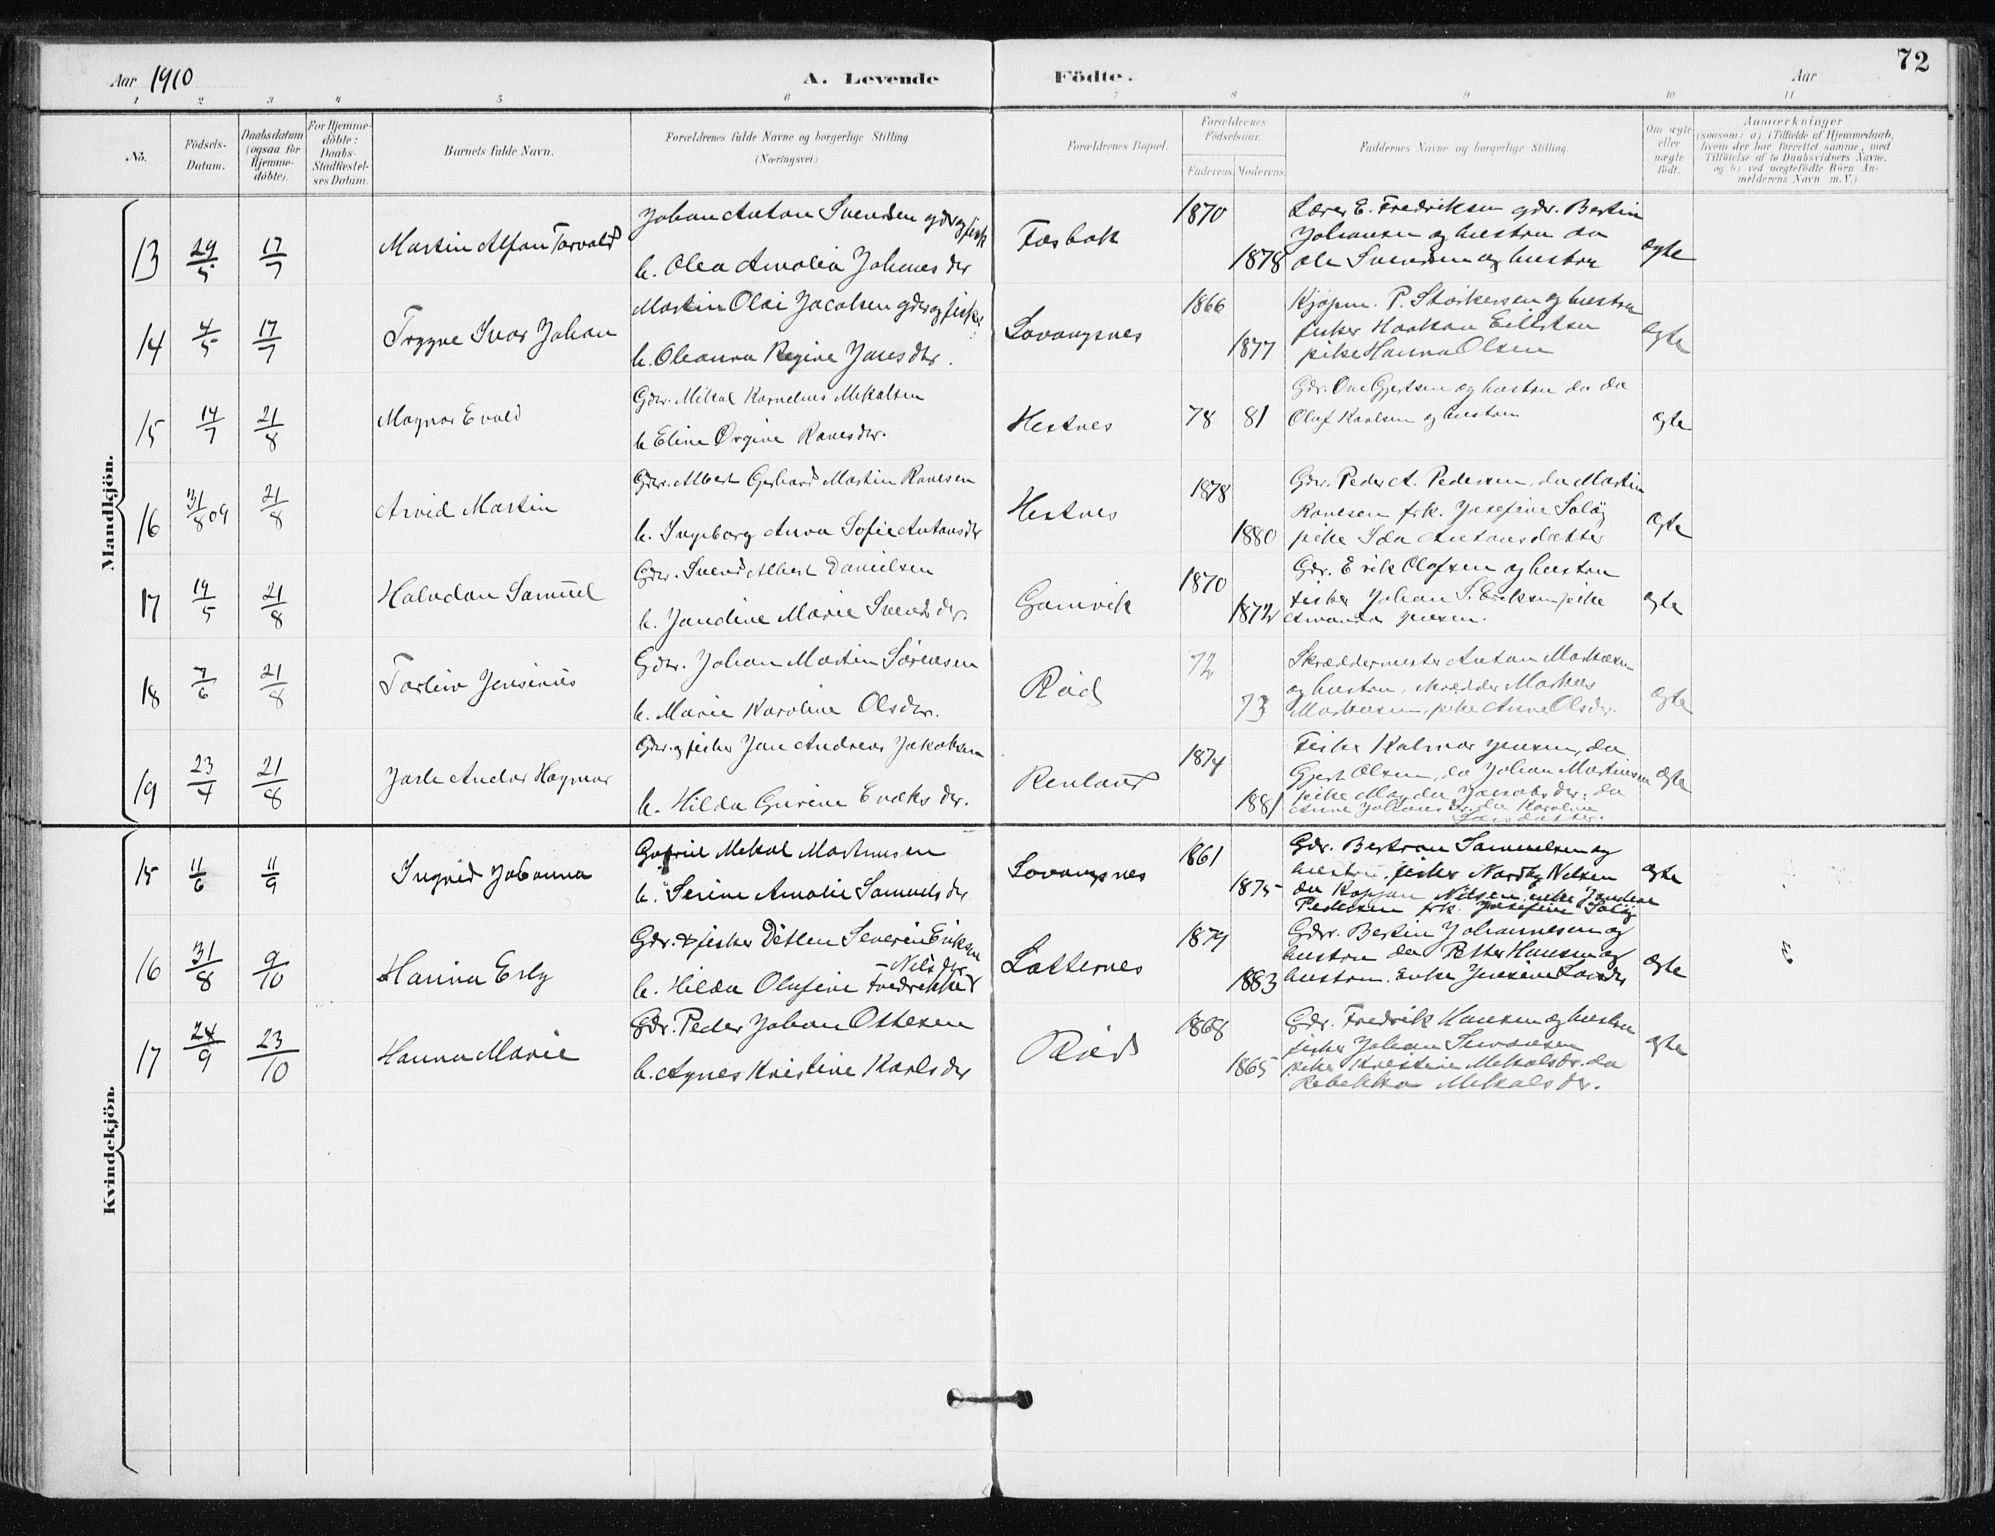 Aar 1910
A. Levende Födte.
Aar
72
1 2 3 4 5 6 7 8 9 10 11
No.
Födsels-Datum.
Daabsdatum (ogsaa for Hjemme-döbte).
For Hjemme-döbte: Daabs-Stadfæstel-ses Datum.
Barnets fulde Navn.
Forældrenes fulde Navne og borgerlige Stilling (Næringsvei.)
Forældrenes Bopæl.
Forældrenes Födselsaar.
Faderens. Moderens.
Faddernes Navne og borgerlige Stilling.
Om ægte eller uægte födt.
Anmærkninger (saasom: a) i Tilfælde af Hjemmedaab, hvem der har forrettet samme, med Tilföielse af to Daabsvidners Navne, og b) ved uægtefödte Börn An-melderens Navn m. V.)
Mandkjön.
13 29/5 17/7 Martin Alfon Torvald
Johan Anton Svendsen gdr og fisk
h. Olea Amalia Johnes dtr
Fosbak 1870 1878
Lærer E. Fredriksen gdr. Bertin
Johansen og hustru da
Ole Svendsen og hustru
ægte
14 4/5 17/7 Trygve Ivar Johan
Martin Olai Jacobsen gdr og fisker
h. Oleanna Regine Jansdtr.
Lovangsnes 1866 1877
Kjøpm. P. Størkersen og hustru
fisker Haakon Eilertsen
pike Hanna Olsen
ægte
15 14/7 21/8 Magnar Evald
Gdr. Mikal Kornelius Mikalsen
h. Eline Orgine Ranesdtr.
Hestnes 78 81
Gdr. Ole Gjertsen og hustru da da
Olaf Karlsen og hustru
ægte
16 31/8 09 21/8 Arvid Martin
Gdr. Albert Gerhard Martin Ranesen
h. Ingeborg Anna Sofie Antonsdtr
Hestnes 1878 1880
Gdr. Peder A. Pedersen, da Martin
Ranesen frk. Josefine Soløy
pike Ida Antonsdatter
ægte
17 14/5 21/8 Halvdan Samuel
Gdr. Svend Albert Danielsen
h. Jandine Marie Svends dr.
Gamvik 1870 1872
Gdr. Erik Olofsen og hustru
fisker Johan S. Eriksen pike
Amanda Jensen.
ægte
18 7/6 21/8 Torleiv Jensinius
Gdr. Johan Martin Sørensen
h. Marie Karoline Olsdtr.
Rød 72 73
Skræddermester Anton Markusen
og hustru, skrædder Markus
Markusen, pike Anne Olsdr.
ægte
19 23/4 21/8 Jarle Andor Hagmar
Gdr. og fisker Jan Andreas Jakobsen
h. Hilda Gurine Eriks dr.
Renland 1874 1881
Fisker Kalmar Jensen, da
Gjert Olsen, da Johan Martinsen
pike Magda Jakobsdr. da
Anne Johans dr. da Karoline
Larsdatter.
ægte
Kvindekjön.
15 11/6 11/9 Ingrid Johanna
Gabriel Mikal Martinusen
h. Serine Amalie Samuelsdr
Lovangsnes 1861 1875
Gdr. Bertran Samuelsen og
hustru, fisker Nordby Nilsen
da Kasper Nilsen, pike Jandine
Pedersen frk. Josefine Soløy
ægte
16 31/8 9/10 Hanna Esly
Gdr. & fisker Ditlen Severin Eriksen
h. Hilda Olufine Fredrikke Nilsdr
Latternes 1879 1883
Gdr. Bertin Johannesen og
hustru da Petter Hansen og
hustru. Enke Jensine Larsdr
ægte
17 24/9 23/10 Hanna Marie
Gdr. Peder Johan Ottesen
h. Agnes Kristine Karlsdr
Rød 1868 1865
Gdr. Fredrik Hansen og hustru
fisker Johan Simonsen
pike Kristine Mikalsdr. da
Rebekka Mikalsdr.
ægte